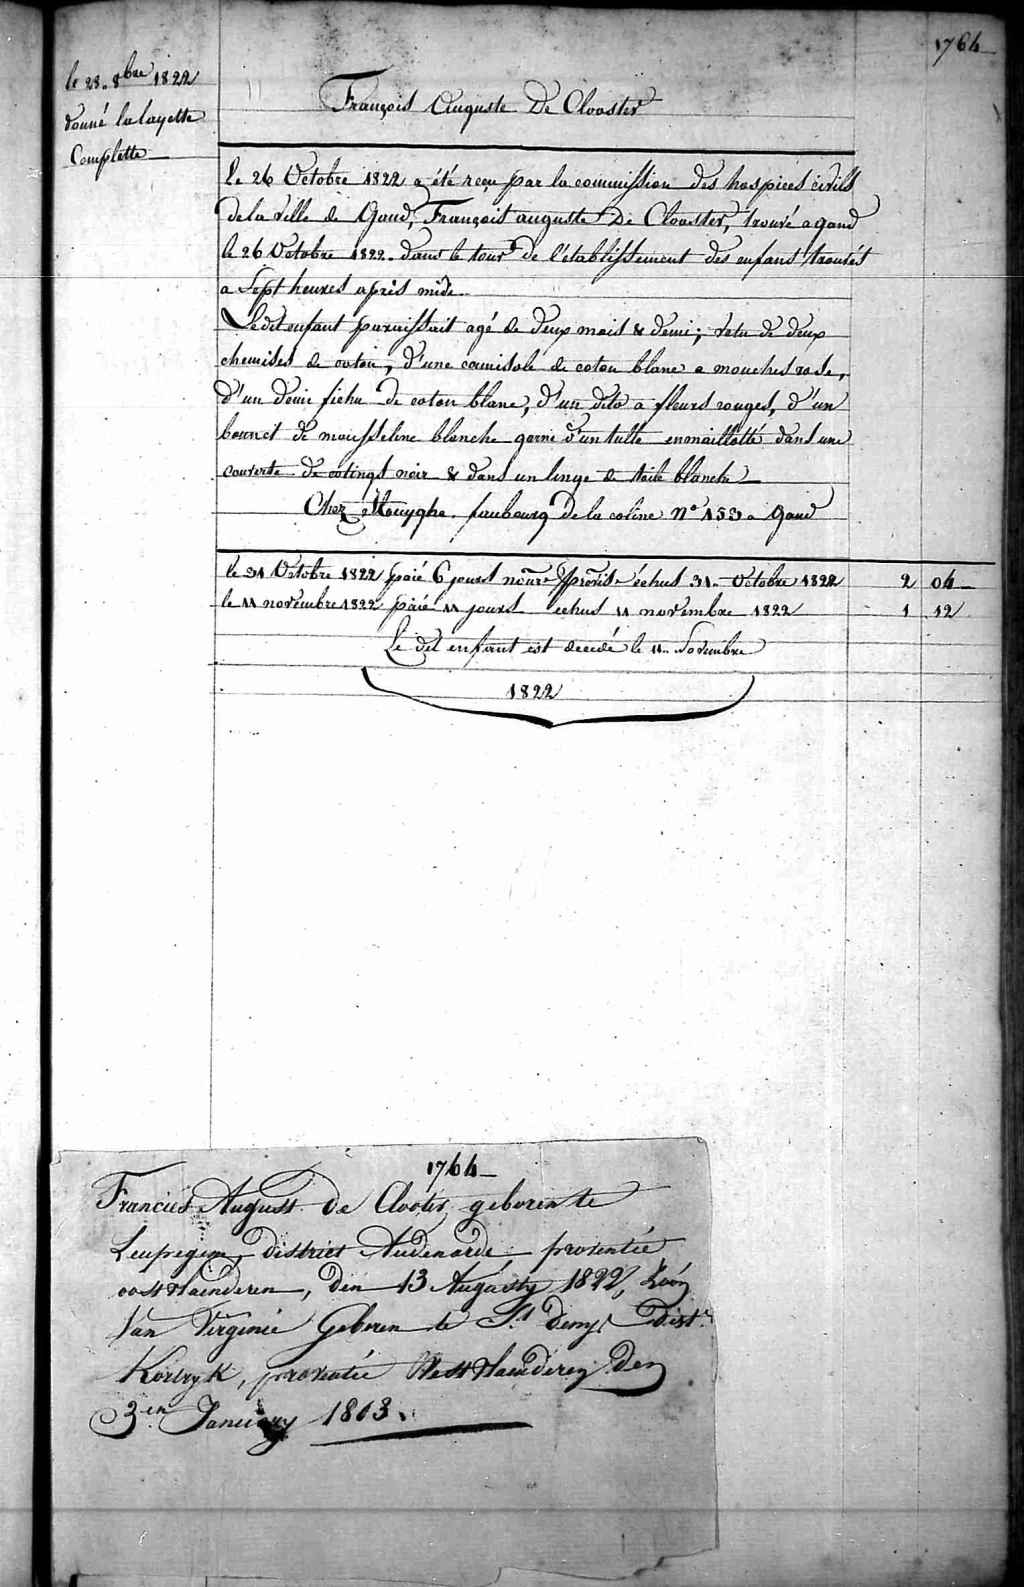 1764
le 28. 8bre 1822
donné la layette
Complette
François Auguste De Clooster
Le 26 Octobre 1822 a été reçu par la commission des hospices civils
de la ville de Gand, François auguste De Clooster, trouvé a gand
le 26 Octobre 1822. dans le tour de l'établissement des enfans trouvés
a Sept heures après midi.
Ledit enfant paraissait agé de deux mois & demi; vetu de deux
chemises de coton, d'une camisole de coton blanc a mouches rose,
d'un demi fichu de coton blanc, d'un dito a fleurs rouges, d'un
bonnet de mousseline blanche garni d'un tulle enmaillotté dans une
couverte de catings noir & dans un linge de toile blanche
Chez Mouyghe. faubourg de la coline N° 153 a gand
le 31 Octobre 1822 paié 6 jours nourre échus 31. Octobre 1822 2 04
le 11 novembre 1822 paié 11 jours echus 11 novembre 1822 1 12
Le dit enfant est decedé le 11. Novembre
1822
1764
Francies August de Clooter geboren te
Leupegem, district Audenarde, provintie
oostvlaenderen, den 13 Augusty 1822, Zoon
Van Virginie Geboren te St. Denys Distr.
Kortryk, provintie Westvlaenderen den
3en January 1803.